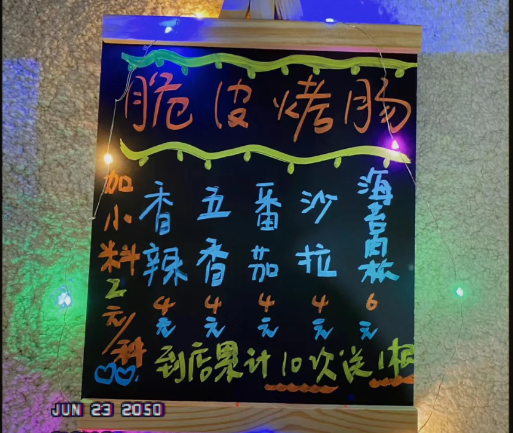 脆皮烤肠
加小料2元/种
香辣4元
五香4元
番茄4元
沙拉4元
海苔肉松6元
到店累计10次送1根
JUN 23 2050